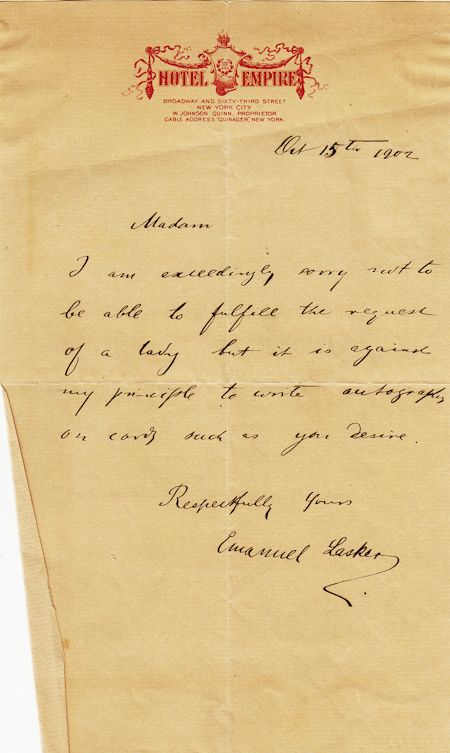 HOTEL EMPIRE
BROADWAY AND SIXTY-THIRD STREET
NEW YORK CITY
W. JOHNSON QUINN, PROPRIETOR
CABLE ADDRESS "QUINAGER", NEW YORK
Oct 15th 1902
Madam
I am exceedingly sorry not to
be able to fulfill the request
of a lady but it is against
my principle to write autographs
on cards such as you desire.
Respectfully Yours
Emanuel Lasker